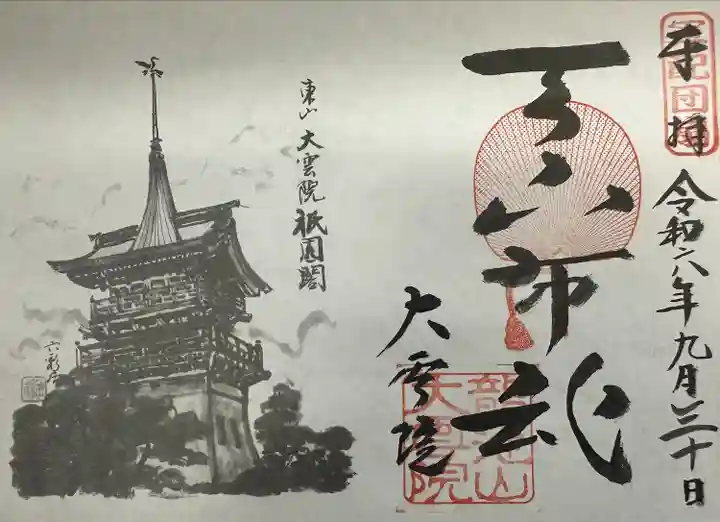 奉拝 令和六年九月三十日
天下布武
大雲院
龍池山
大雲院
東山 大雲院 祇園閣